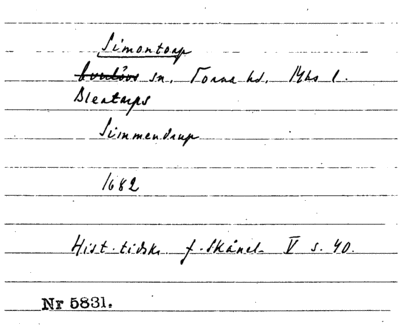 Simontorp
Everlövs sn, Torna hd, Mhs l.
Blentarps
Simmendrup
1682
Hist. tidskr. f. Skånel. V s. 40.
Nr 5831.